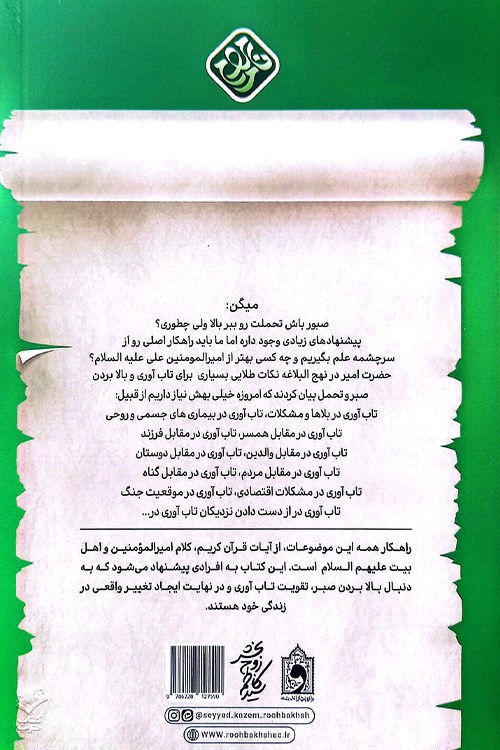 میگن:
صبور باش تحملت رو ببر بالا ولی چطوری؟
پیشنهادهای زیادی وجود داره اما ما باید راهکار اصلی رو از
سرچشمه علم بگیریم و چه کسی بهتر از امیرالمومنین علی علیه السلام؟
حضرت امیر در نهج البلاغه نکات طلایی بسیاری برای تاب آوری و بالا بردن
صبر و تحمل بیان کردند که امروزه خیلی بهش نیاز داریم از قبیل:
تاب آوری در بلاها و مشکلات، تاب آوری در بیماری های جسمی و روحی
تاب آوری در مقابل همسر، تاب آوری در مقابل فرزند
تاب آوری در مقابل والدین، تاب آوری در مقابل دوستان
تاب آوری در مقابل مردم، تاب آوری در مقابل گناه
تاب آوری در مشکلات اقتصادی، تاب آوری در موقعیت جنگ
تاب آوری در از دست دادن نزدیکان تاب آوری در...
راهکار همه این موضوعات، از آیات قرآن کریم، کلام امیرالمؤمنین و اهل
بیت علیهم السلام است. این کتاب به افرادی پیشنهاد می‌شود که به
دنبال بالا بردن صبر، تقویت تاب آوری و در نهایت ایجاد تغییر واقعی در
زندگی خود هستند.
سید کاظم روحبخش
9 786228 127590
@seyyed.kazem.roohbakhsh
www.roohbakhshac.ir